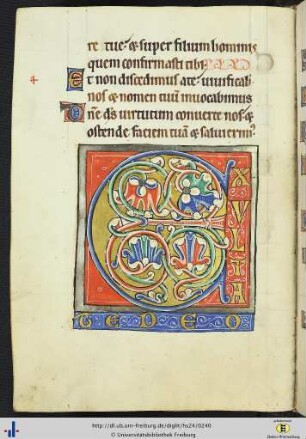 re tue: & super filium hominis
quem confirmasti tibi
Et non discedimus a te: uiuificab
nos & nomen tuū inuocabimus
Dñe ds uirtutum conuerte nos &
ostende faciem tuā & salui erim
EXULTA
TE DEO
http://dl.ub.uni-freiburg.de/diglit/hs24/0240
© Universitätsbibliothek Freiburg